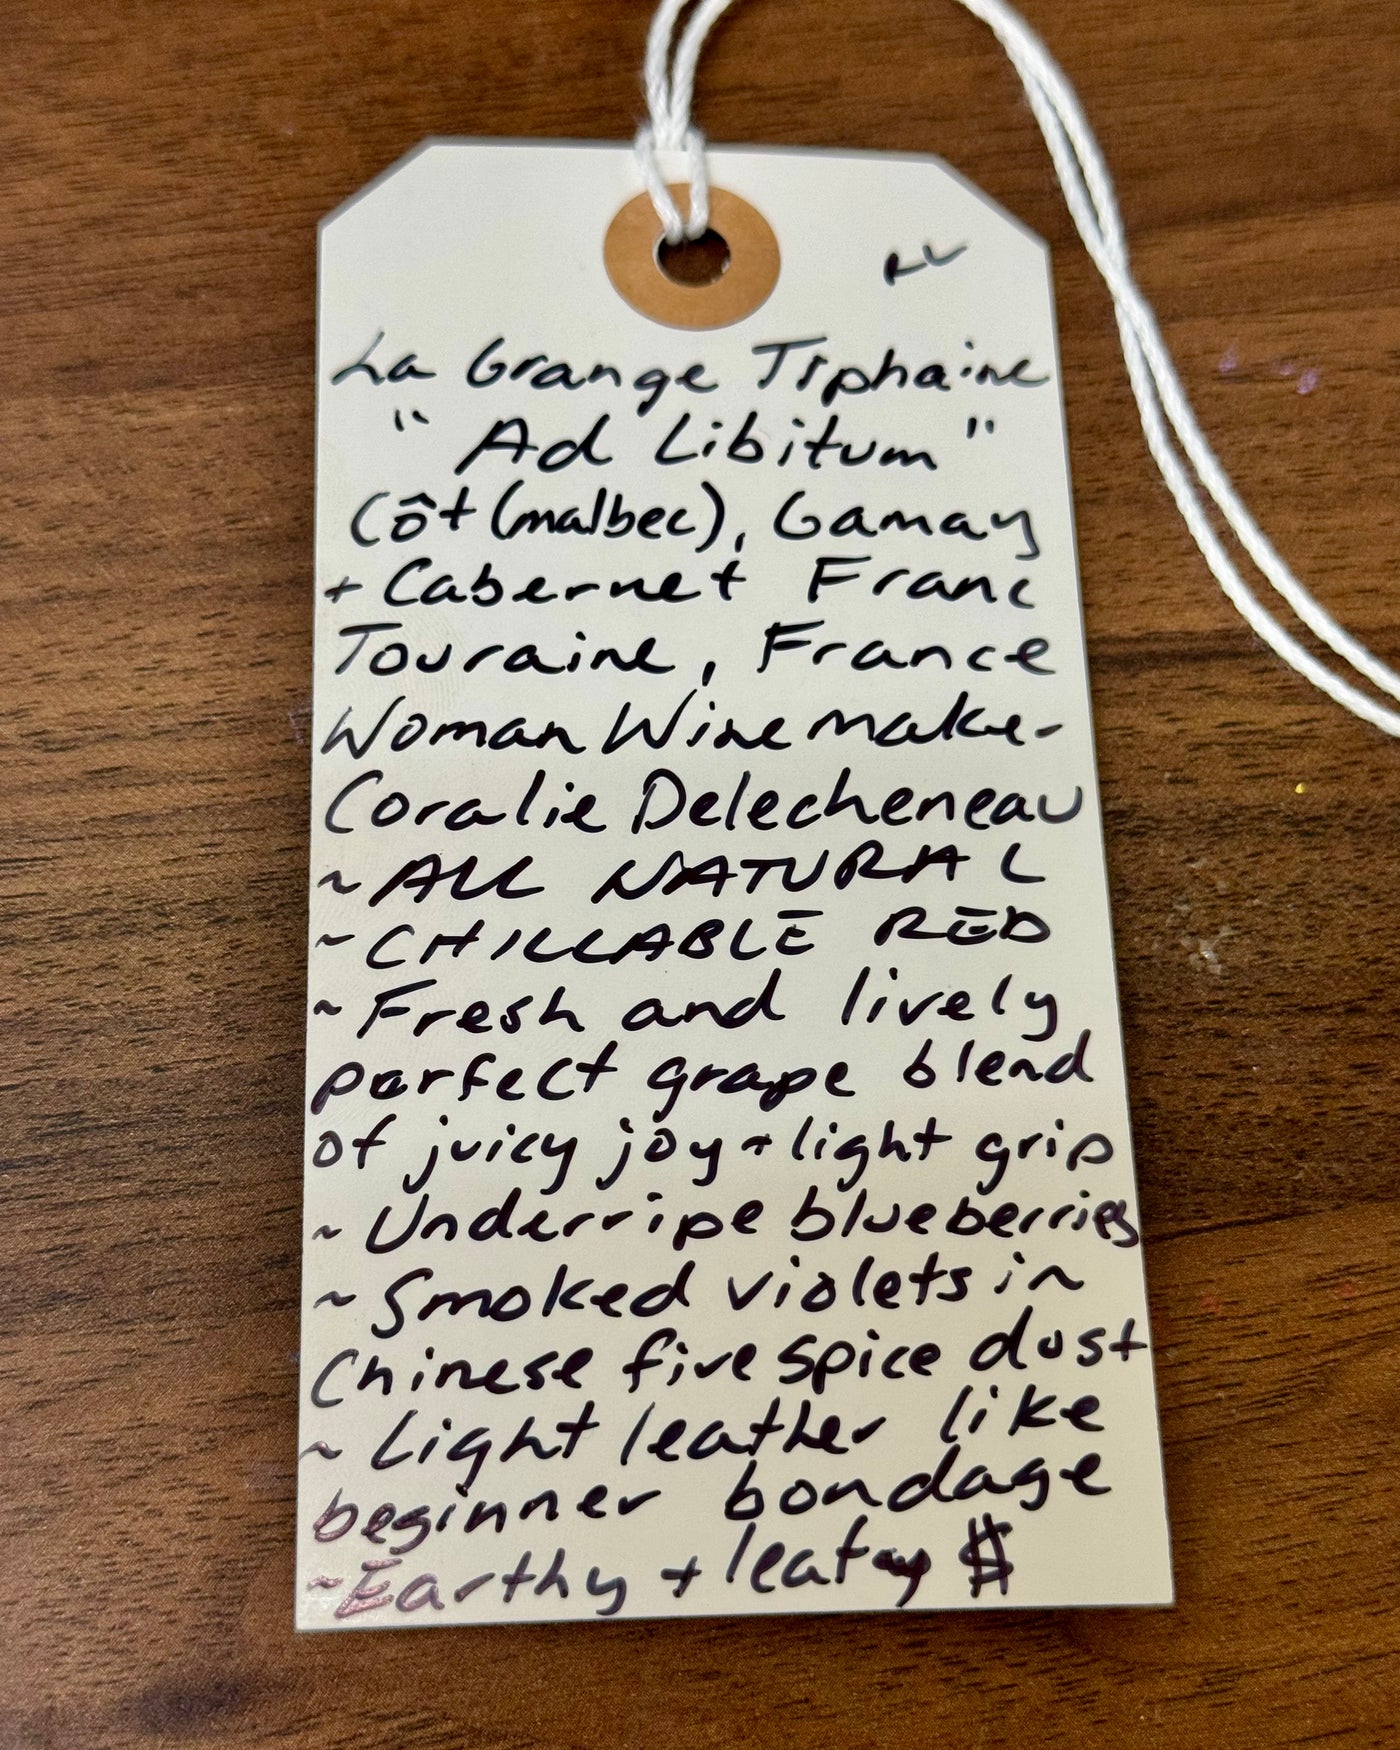 RL
La Grange Tiphaine
"Ad Libitum"
Côt (malbec), Gamay
+ Cabernet Franc
Touraine, France
Woman Winemaker
Coralie Delecheneau
~ ALL NATURAL
~ CHILLABLE RED
~ Fresh and lively
perfect grape blend
of juicy joy + light grip
~ Underripe blueberries
~ Smoked violets in
Chinese five spice dust
~ Light leather like
beginner bondage
~ Earthy + leafy $